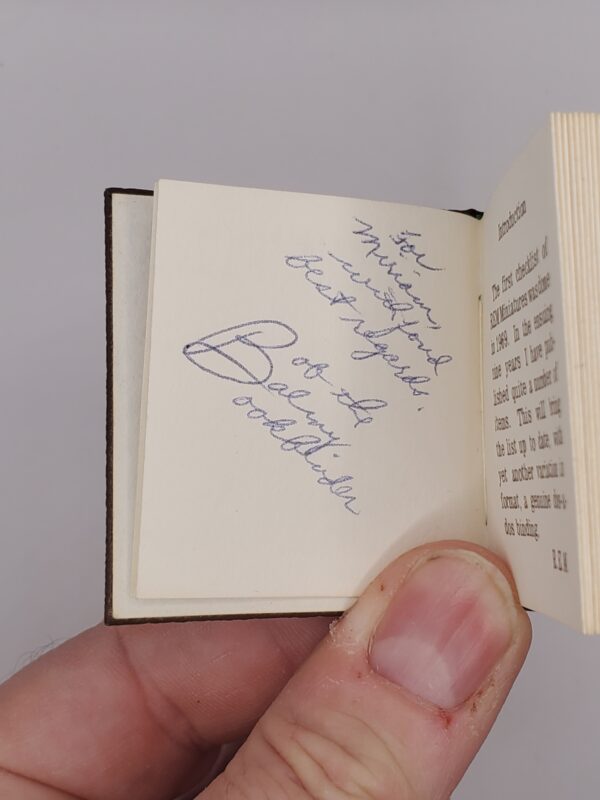 For
Miriam,
with fond
best regards.
Bob the
almy
ookbinder
Introduction
The first checklist of
REM Miniatures was done
in 1969. In the ensuing
nine years I have pub-
lished quite a number of
items. This will bring
the list up to date, with
yet another variation in
format, a genuine dos-à-
dos binding.
R E M